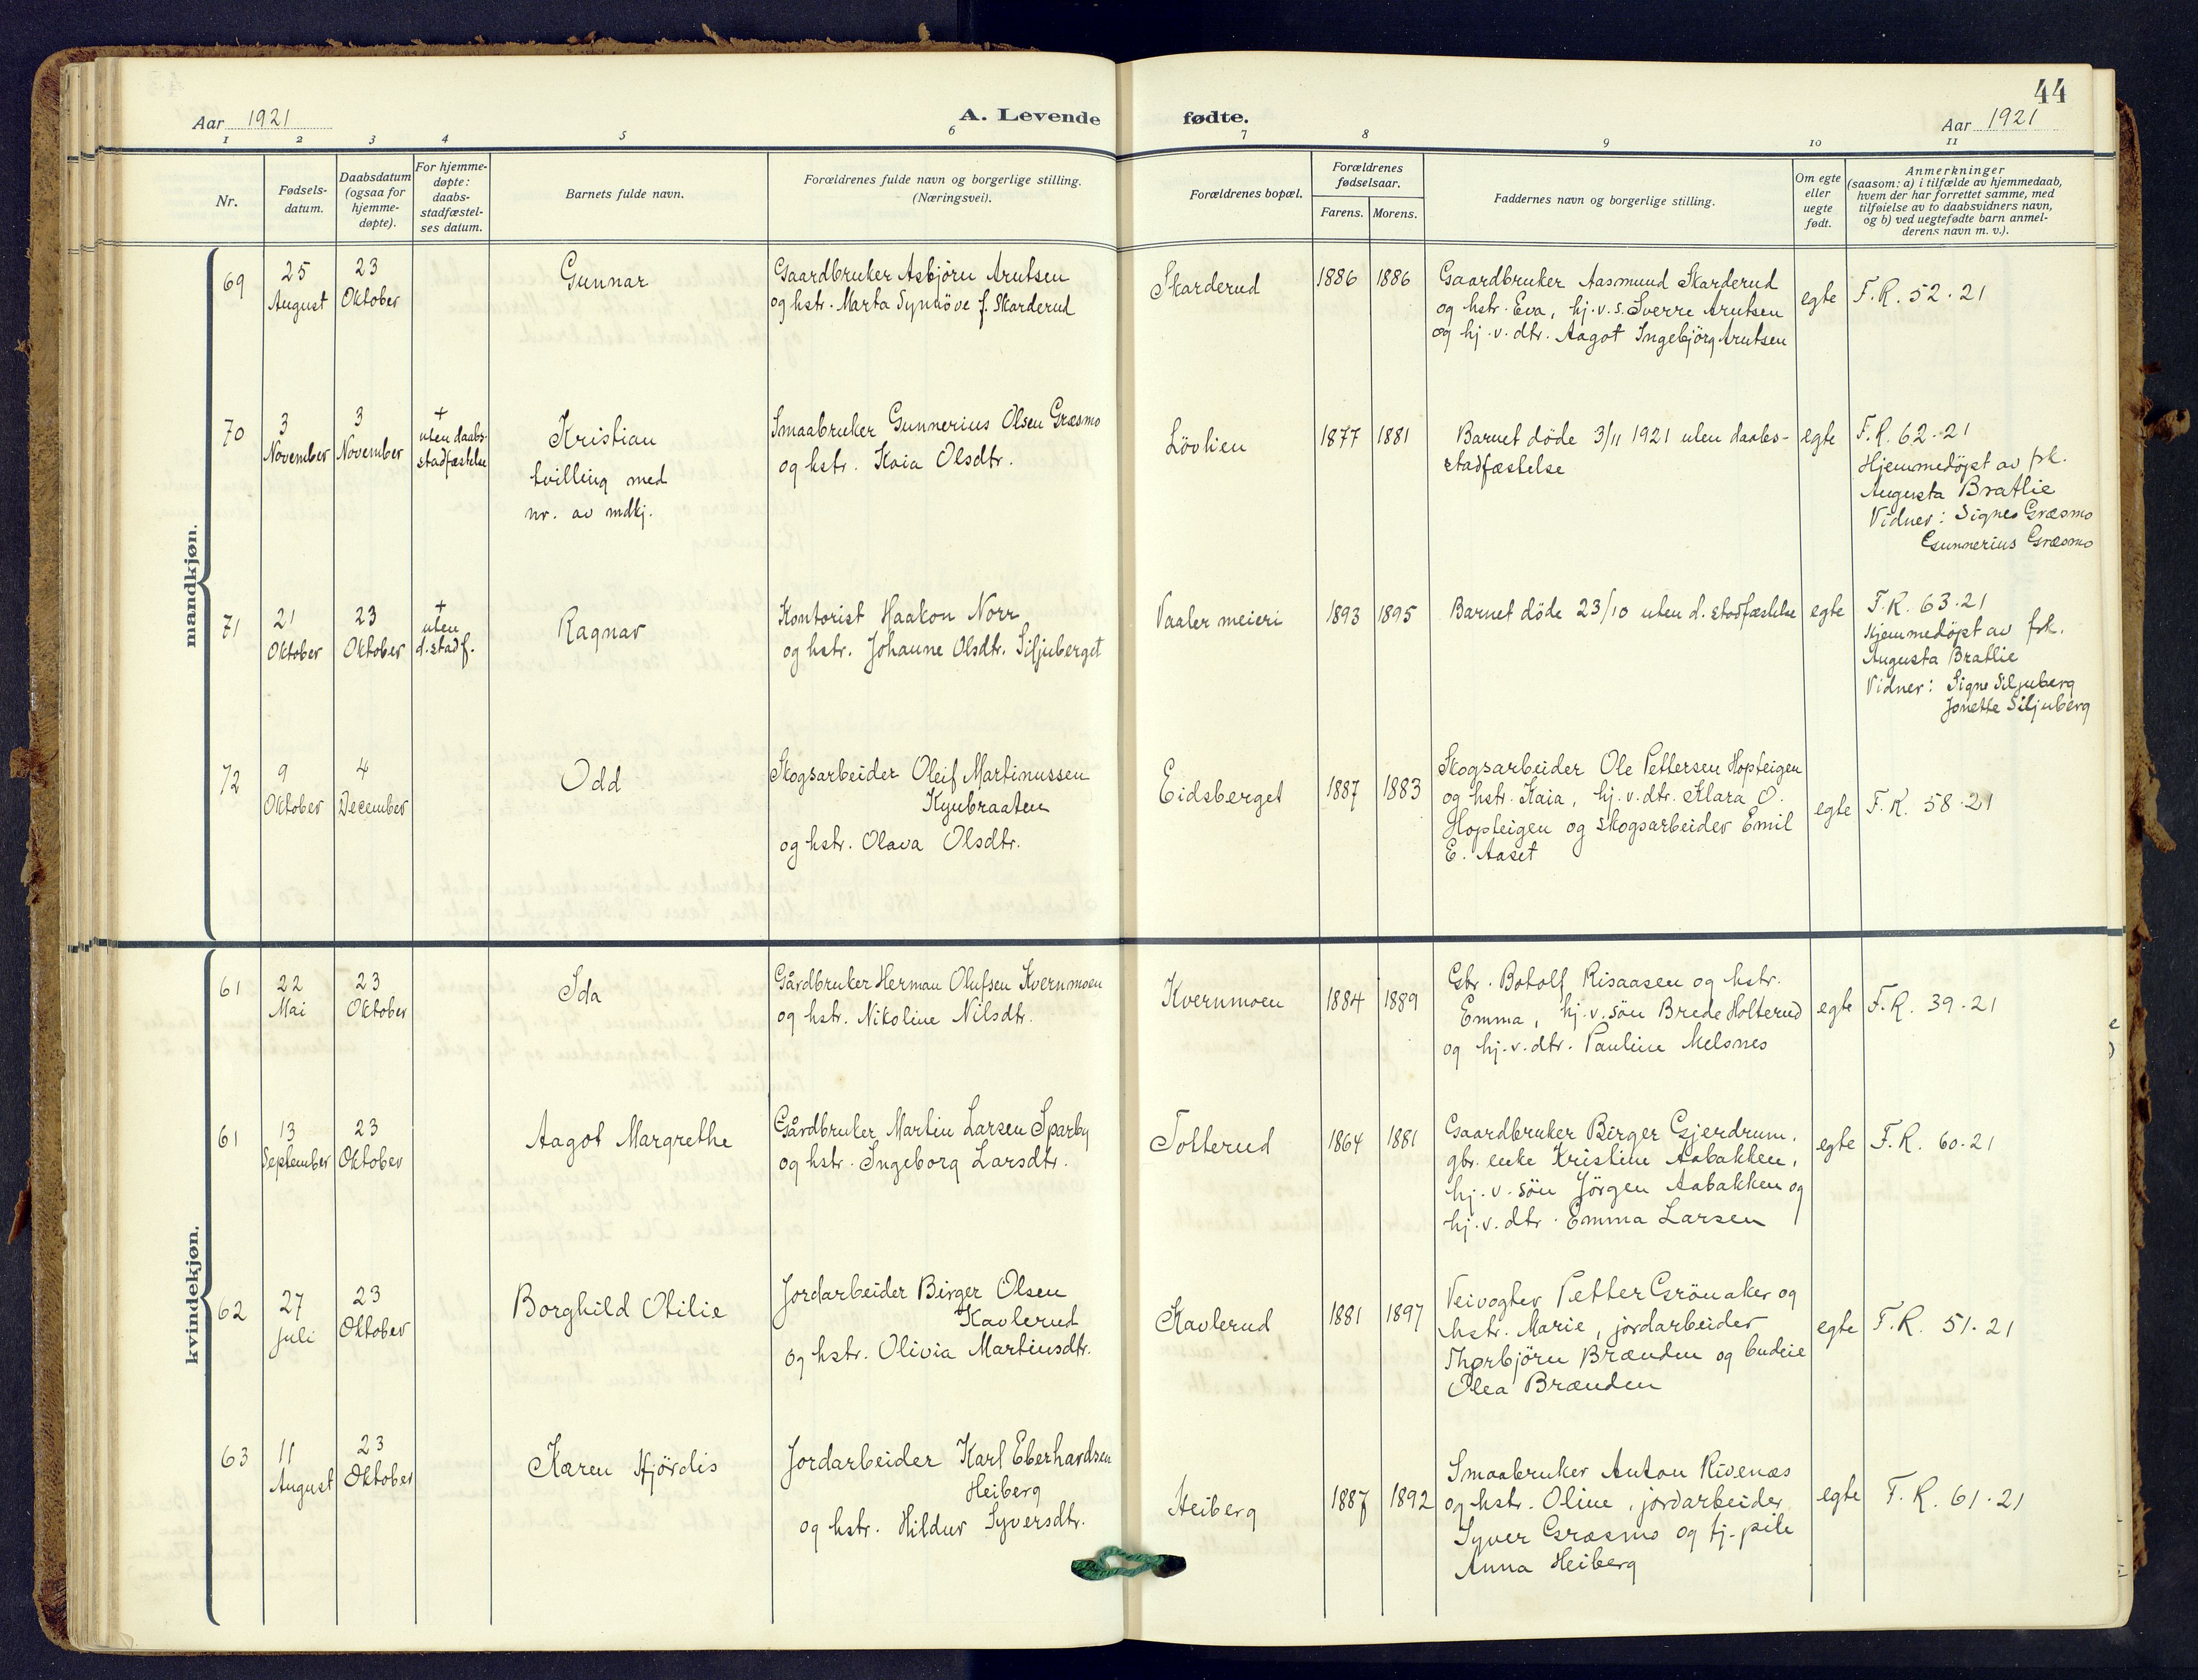 44
Aar 1921
A. Levende fødte.
Aar 1921
1 2 3 4 5 6 7 8 9 10 11
Nr.
Fødsels-
datum.
Daabsdatum
(ogsaa for
hjemme-
døpte).
For hjemme-
døpte:
daabs-
stadfæstel-
ses datum.
Barnets fulde navn.
Forældrenes fulde navn og borgerlige stilling.
(Næringsvei).
Forældrenes bopæl.
Forældrenes
fødselsaar.
Farens. Morens.
Faddernes navn og borgerlige stilling.
Om egte
eller
uegte
født.
Anmerkninger
(saasom: a) i tilfælde av hjemmedaab,
hvem der har forrettet samme, med
tilføielse av to daabsvidners navn,
og b) ved uegtefødte barn anmel-
derens navn m. v.).
mandkjøn.
69
25
August
23
Oktober
Gunnar
Gaardbruker Asbjörn Arntsen
og hstr. Marta Synnöve f. Skarderud
Skarderud
1886 1886
Gaardbruker Aasmund Skarderud
og hstr. Eva, hj. v. s. Sverre Arntsen
og hj. v. dtr. Aagot Ingebjörg Arntsen
egte
F. R. 52. 21
70
3
November
3
November
+
uten daabs-
stadfæstelse
Kristian
tvilling med
nr. av mdkj.
Smaabruker Gunnerius Olsen Græsmo
og hstr. Kaia Olsdtr.
Lövlien
1877 1881
Barnet döde 3/11 1921 uten daabs-
stadfæstelse
egte
F. R. 62. 21
Hjemmedöpt av frk.
Augusta Bratlie
Vidner: Signe Græsmo
Gunnerius Græsmo
71
21
Oktober
23
Oktober
+
uten
d. stadf.
Ragnar
Kontorist Haakon Norr
og hstr. Johanne Olsdtr. Siljuberget
Vaaler meieri
1893 1895
Barnet döde 23/10 uten d. stadfæstelse
egte
F. R. 63. 21
Hjemmedöpt av frk.
Augusta Bratlie
Vidner: Signe Siljuberg
Jonette Siljuberg
72
9
Oktober
4
December
Odd
Skogsarbeider Oleif Martinussen
Kynbraaten
og hstr. Olava Olsdtr.
Eidsberget
1887 1883
Skogsarbeider Ole Pettersen Hopteigen
og hstr. Kaia, hj. v. dtr. Klara O.
Hopteigen og skogsarbeider Emil
E. Aaset
egte
F. R. 58. 21
kvindekjøn.
61
22
Mai
23
Oktober
Ida
Gårdbruker Herman Olufsen Kvernmoen
og hstr. Nikoline Nilsdtr.
Kvernmoen
1884 1889
Gbr. Botolf Risaasen og hstr.
Emma, hj. v. sön Brede Holterud
og hj. v. dtr. Pauline Melsnes
egte
F. R. 39. 21
61
13
September
23
Oktober
Aagot Margrethe
Gårdbruker Martin Larsen Sparby
og hstr. Ingeborg Larsdtr.
Tolterud
1864 1881
Gaardbruker Birger Gjerdrum,
gbr. enke Kristine Aabakken,
hj. v. sön Jörgen Aabakken og
hj. v. dtr. Emma Larsen
egte
F. R. 60. 21
62
27
juli
23
Oktober
Borghild Otilie
Jordarbeider Birger Olsen
Kavlerud
og hstr. Olivia Martinsdtr.
Kavlerud
1881 1897
Veivogter Petter Grönaker og
hstr. Marie, jordarbeider
Thorbjörn Brænden og budeie
Olea Brænden
egte
F. R. 51. 21
63
11
August
23
Oktober
Karen Hjördis
Jordarbeider Karl Eberhardsen
Heiberg
og hstr. Hildur Syversdtr.
Heiberg
1887 1892
Smaabruker Anton Rivenæs
og hstr. Oline, jordarbeider
Syver Græsmo og tj. pike
Anna Heiberg
egte
F. R. 61. 21